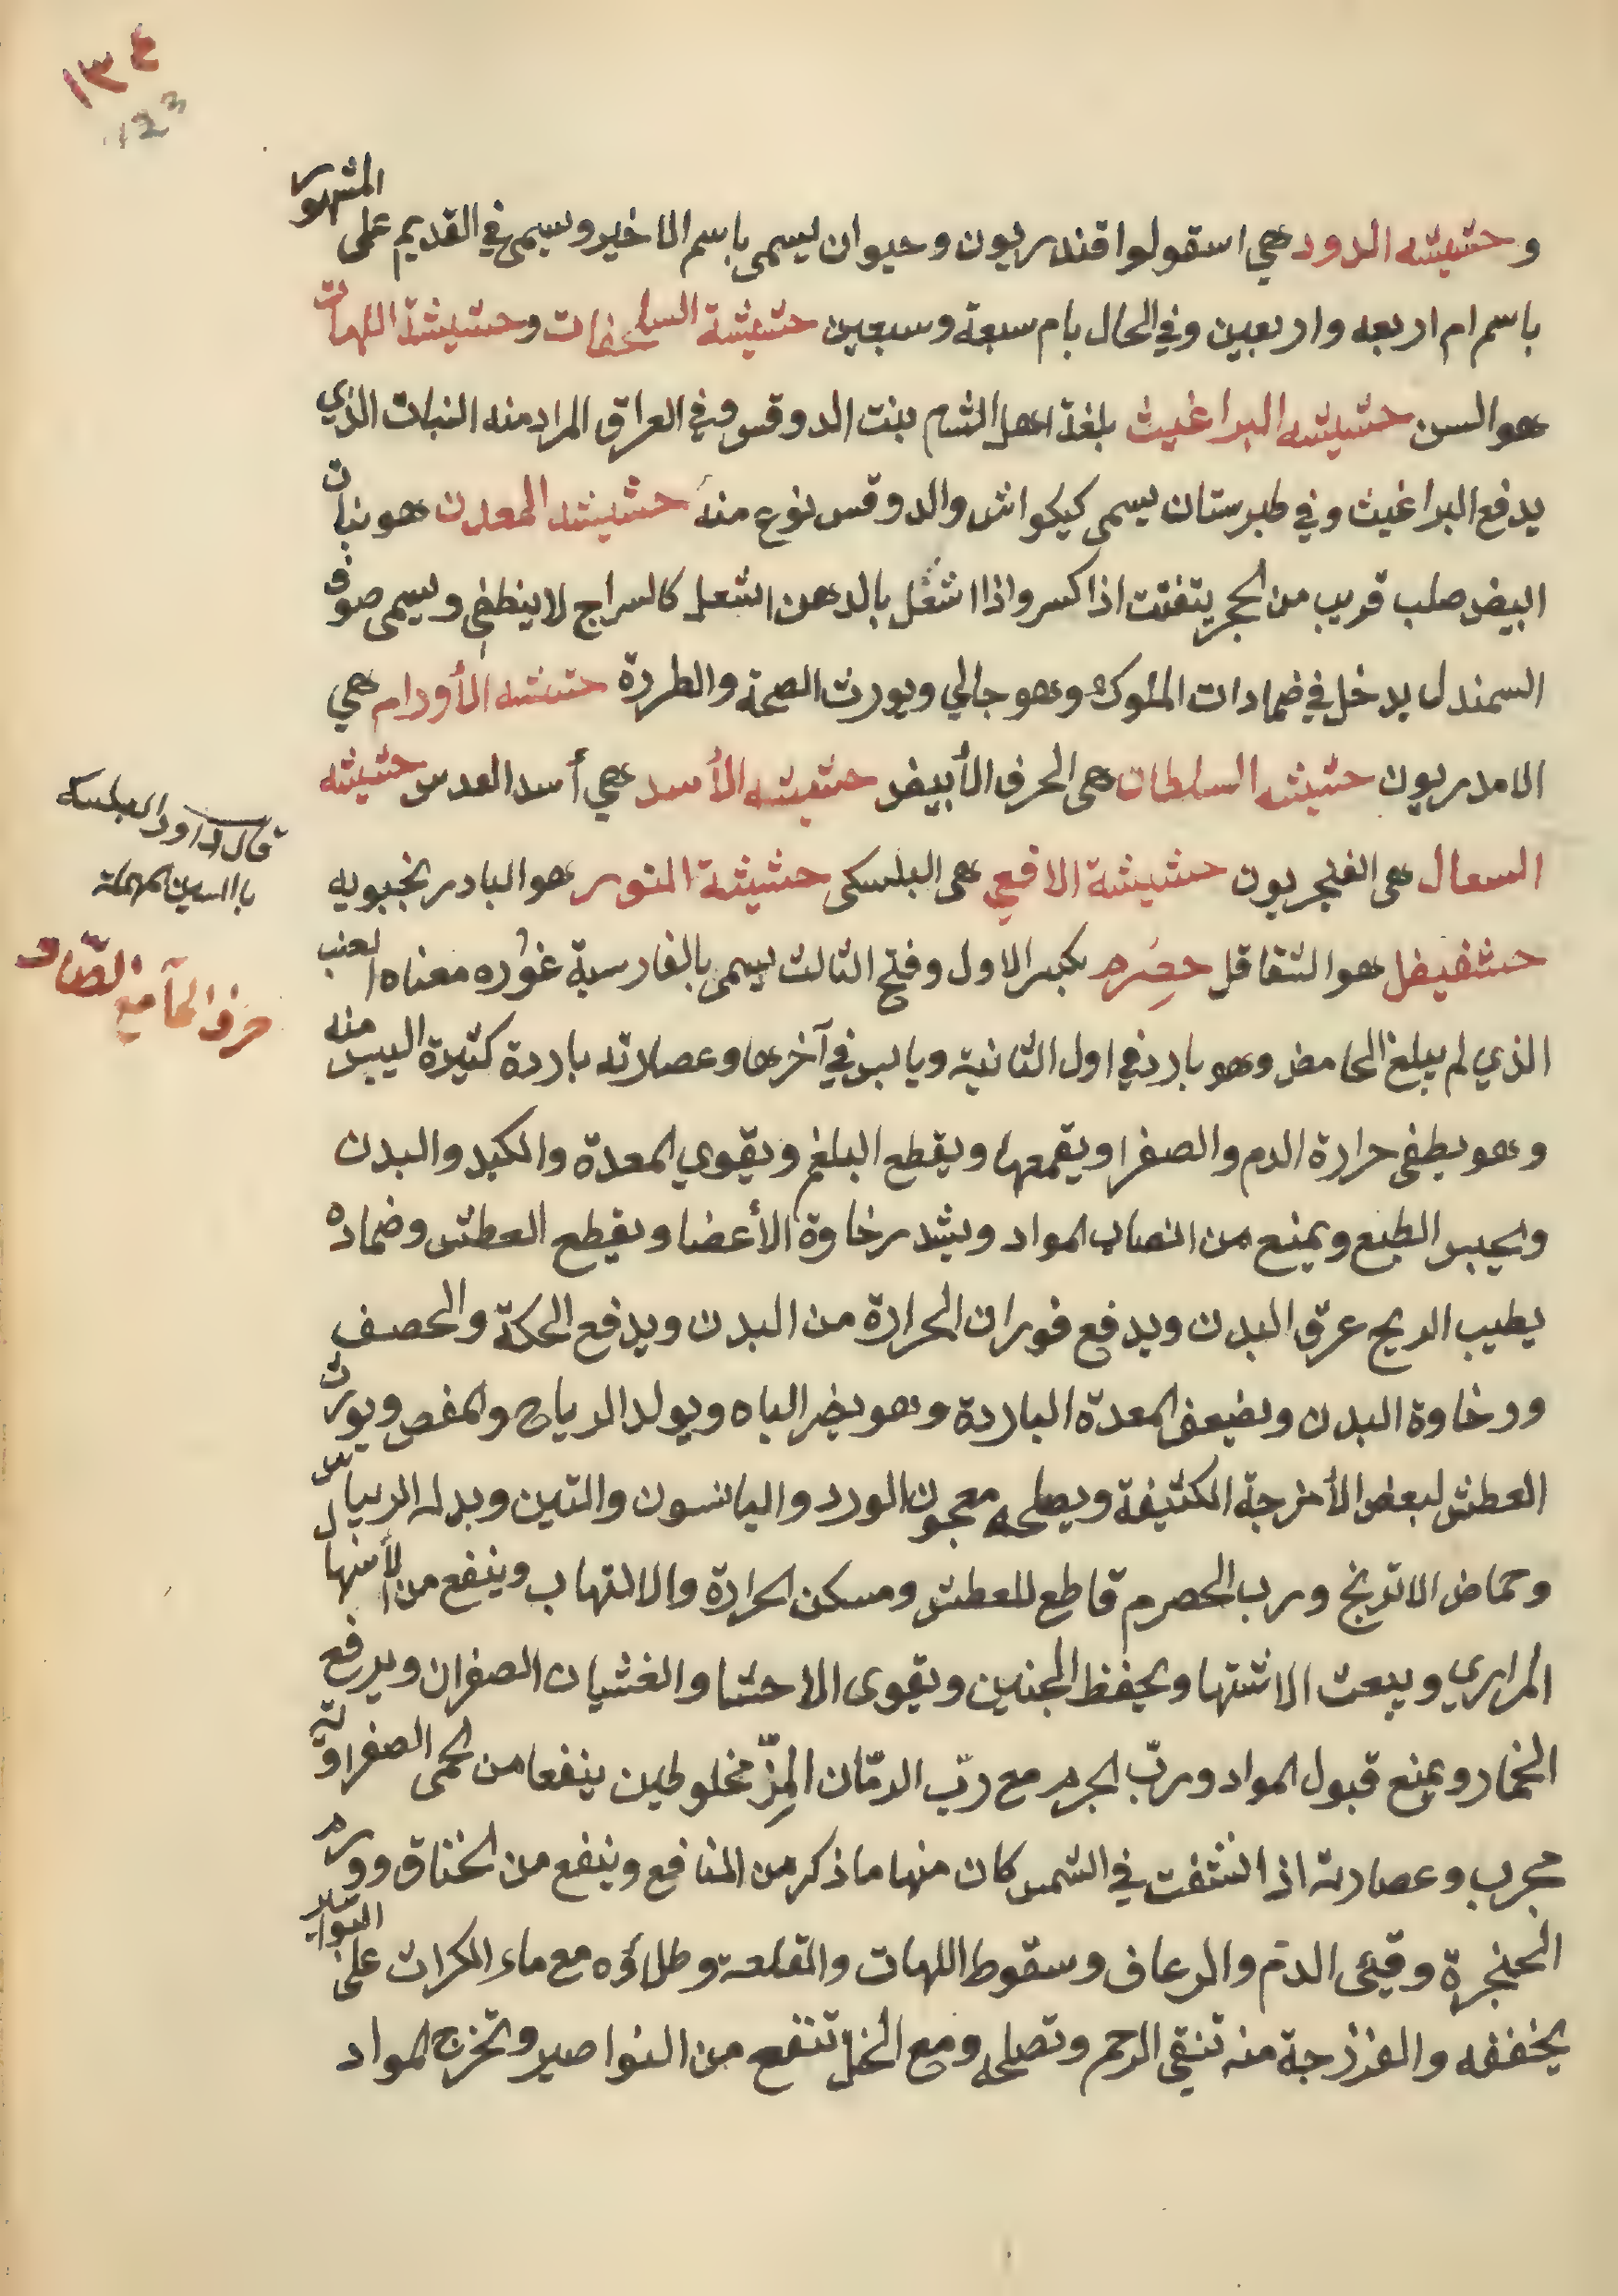 ١٣٤
123
وحشيشه الدود هي اسقولوا قندريون وحيوان يسمى باسم الاخير ويسمى في القديم على المشهور
باسم ام اربعه واربعين وفي الحال بام سبعة وسبعين حشيشة السلحفات وحشيشة اللهات
هو السن حشيشه البراغيث بلغة اهل الشام بنت الدوقس وفي العراق المراد منه النبات الذي
يدفع البراغيث وفي طبرستان يسمى كيكواش والدوقس نوع منه حشيشه المعدن هو نبات
ابيض صلب قريب من الحجر يتفتت اذا كسر واذا اشغل بالدهن اشعل كالسراج لا ينطفي ويسمى صوف
السمندل يدخل في ضمادات الملوك وهو جالي ويورث الصحة والطردة حشيشه الأورام هي
الامدريون حشيشه السلطان هى الحرف الأبيض حشيشه الأسد هي أسد العدس حشيشه
السعال هى الفنجريون حشيشة الافعي هى البلسكى حشيشة النور هو البادرنجبويه
حشفيفل هو الشقاقل حِصْرِم بكسر الاول وفتح الثالث يسمى بالفارسية غوره معناه العنب
الذي لم يبلغ الحامض وهو بارد في اول الثانية ويابس في آخرها وعصارته باردة كثيرة اليبس منه
وهو يطفى حرارة الدم والصفرا ويقمعها ويقطع البلغم ويقوي المعدة والكبد والبدن
ويحبس الطبع ويمنع من انصاب المواد ويشد رخاوة الأعضا ويقطع العطش وضماده
يطيب الريح عرق البدن ويدفع فوران الحرارة من البدن ويدفع الحكة والحصف
ورخاوة البدن ويضعف المعدة الباردة وهو يضر الباه ويولد الرياح والمغص ويورث
العطش لبعض الأمزجة الكثيفة ويصلحه معجون الورد واليانسون والتين وبدله الريباس
وحماض الاترنج ورب الحصرم قاطع للعطش ومسكن الحرارة والالتهاب وينفع من الأسهال
المراري ويبعث الاشتها ويحفظ الجنين ويقوى الاحشا والغشيان الصفران ويدفع
الخمار ويمنع قبول المواد وربّ الجرم مع ربّ الرمّان المِزّ مخلوطين ينفعا من الحمى الصفراوية
مجرب وعصارته اذا نشفت في الشمس كان منها ما ذكر من المنافع وينفع من الخناق وورم
الحنجرة وقيئ الدم والرعاف وسقوط اللهات والقلعة وطلاؤه مع ماء الكرات على البواسير
يخففه والفرزجة منه تنقي الرحم وتصلحه ومع الخل تنفع من النواصير وتخرج المواد
قال داود البلسكه
بالسين المهملة
حرف الحآ مع الصّاد